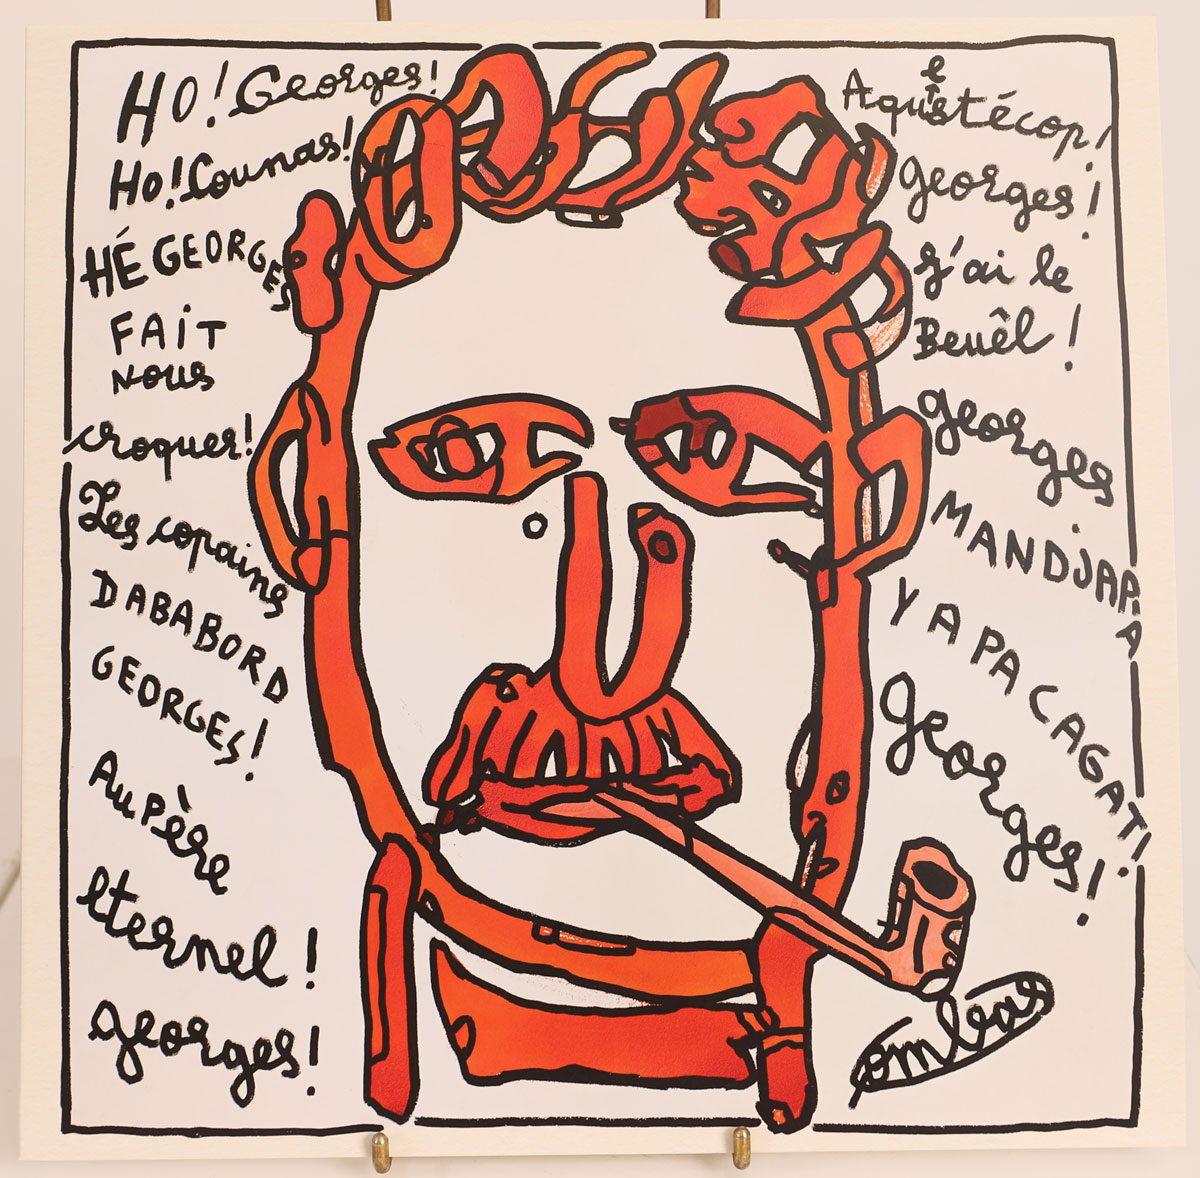 HO! Georges!
Ho! Counas!
HÉ GEORGES
FAIT
NOUS
croquer!
Les copains
DABABORD
GEORGES!
Au père
éternel!
georges!
Aquestécop!
georges!
j'ai le
Beuêl!
georges
MANDJAPA
YAPACAGAT!
georges!
ombras